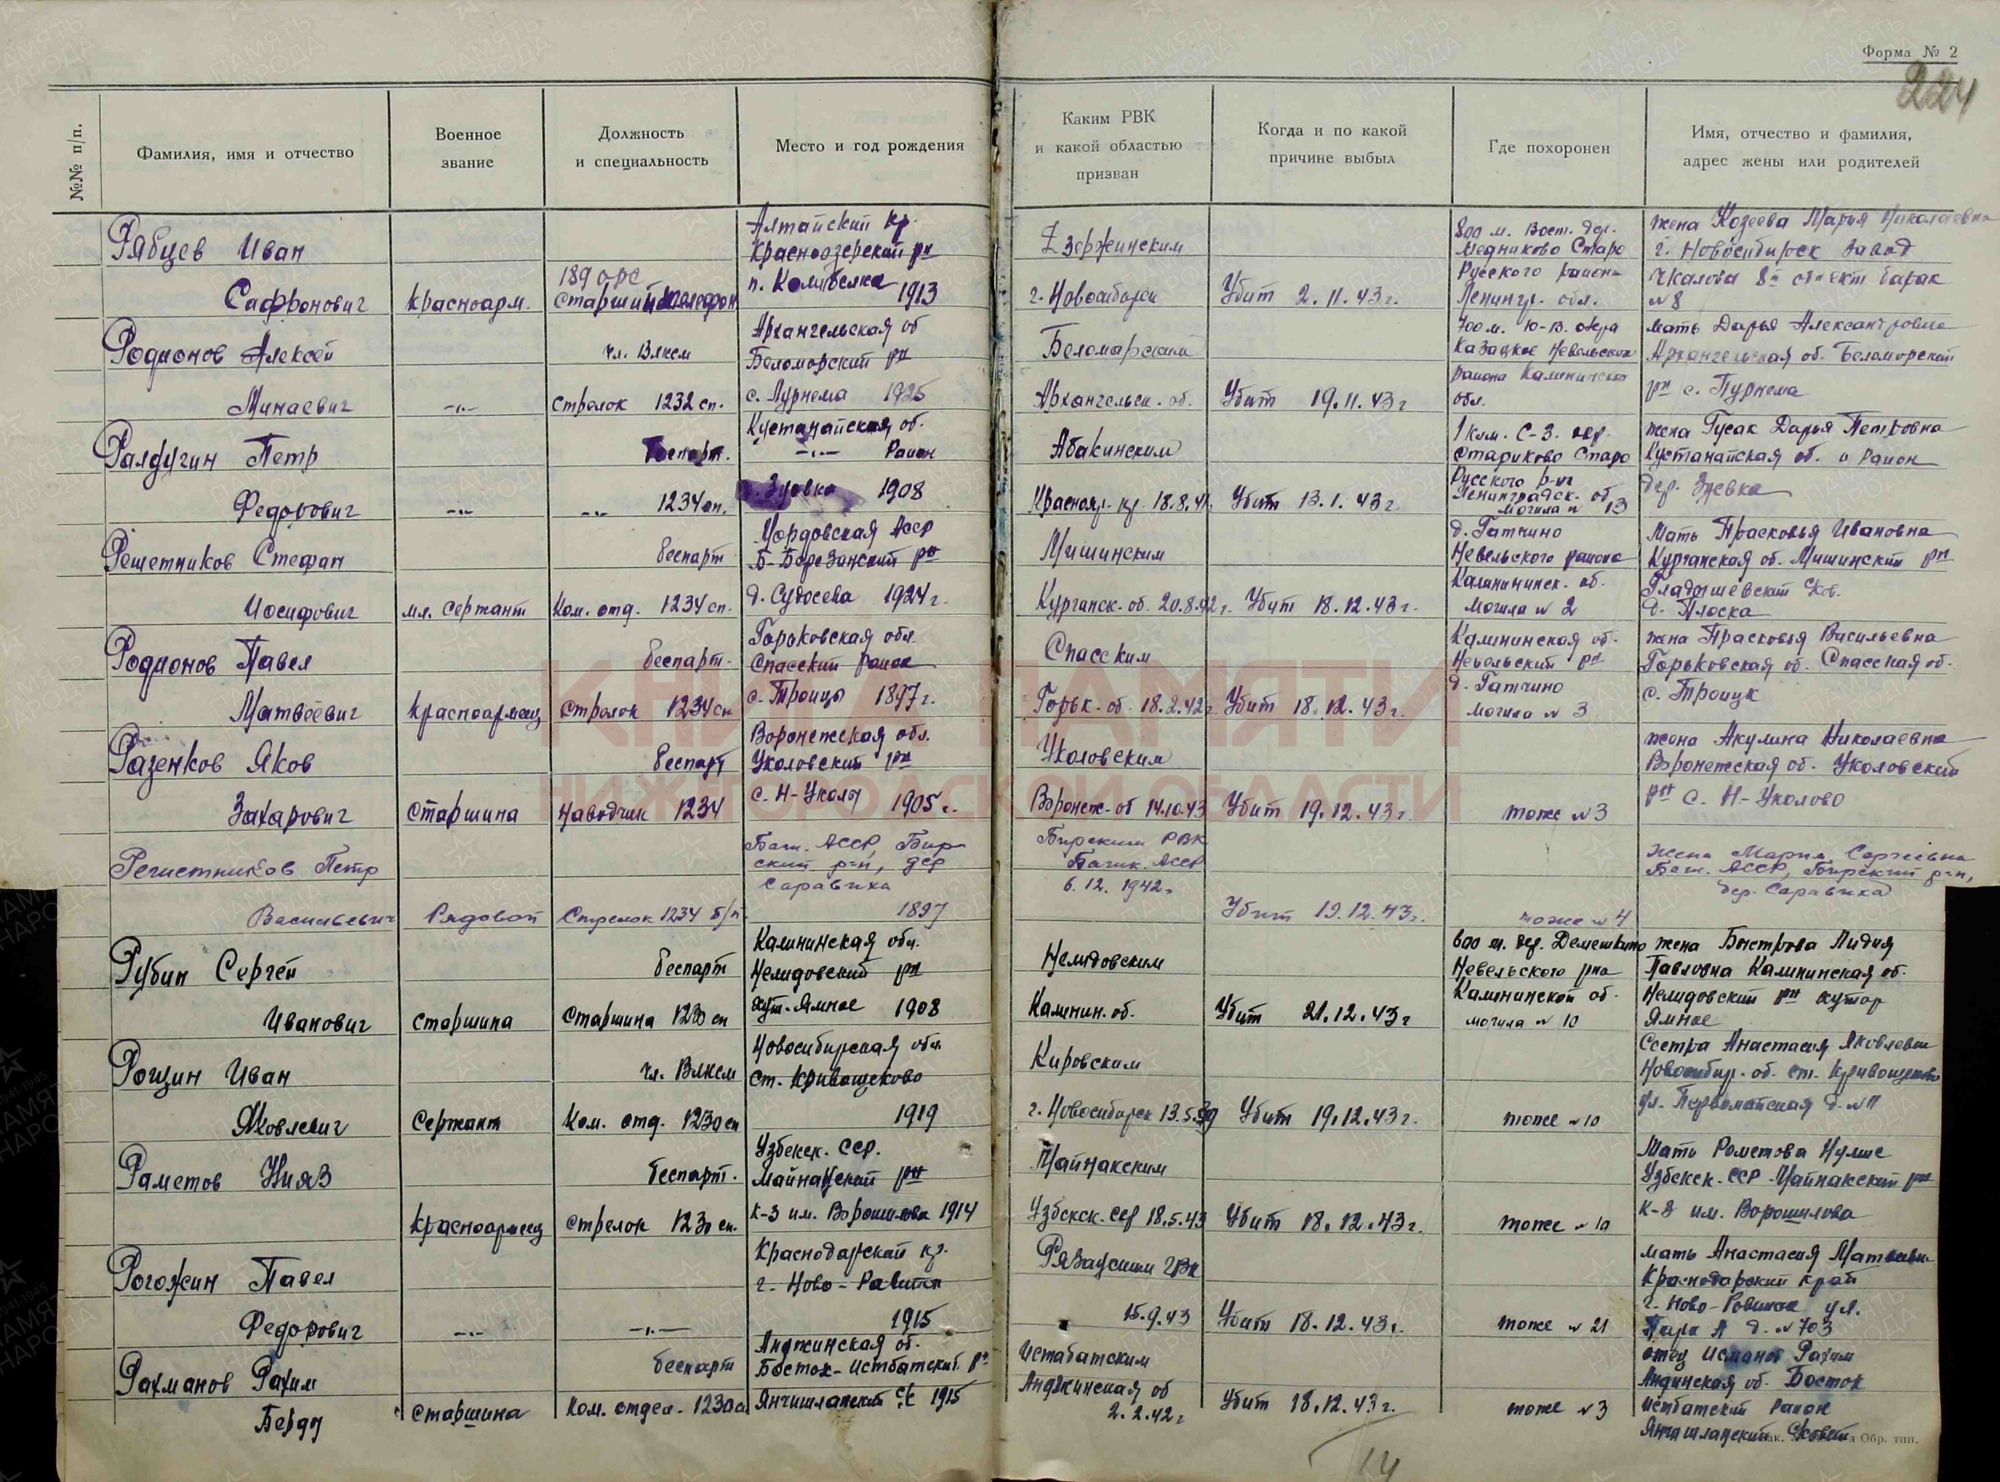 Форма № 2
224
№№ п/п.
Фамилия, имя и отчество
Военное
звание
Должность
и специальность
Место и год рождения
Каким РВК
и какой областью
призван
Когда и по какой
причине выбыл
Где похоронен
Имя, отчество и фамилия,
адрес жены или родителей
Рябцев Иван
Сафронович
Красноарм.
189 орс
Старший телефон
Алтайский кр.
Красноозерский рн
1913
Дзержинским
г. Новосибирск
Убит 2.11.43г.
800 м. Вост. дер.
Медниково Старо
Русского района
Ленингр. обл.
жена Козеева Марья Николаевна
г. Новосибирск Завод
Чкалова 8й объект барак
№ 8
Родионов Алексей
Минаевич
—"—
чл. Влксм
Стрелок 1232 сп.
Архангельская об
Беломорский рн
с. Пурнема 1925
Беломорским
Архангельск. об.
Убит 19.11.43г
700 м. Ю-В. озера
Казацкое Невельского
района Калининской
обл.
мать Дарья Александровна
Архангельская об. Беломорский
рн с. Пурнема
Ралдугин Петр
Федорович
—"—
Беспарт.
—"— 1234 сп.
Кустанайская об.
—"— Район
Зуевка 1908
Абаканским
Краснояр. кр. 18.8.41
Убит 13.1.43г.
1 клм. С-З. дер.
Стариково Старо
Русского р-н
Ленинградск. об
могила № 13
жена Гусак Дарья Петровна
Кустанайская об. и Район
дер. Зуевка
Решетников Стефан
Иосифович
мл. Сержант
беспарт
Ком. отд. 1234 сп.
Мордовская Асср
Б-Березанский рн
д. Судосева 1924г.
Мишинским
Курганск. об. 20.8.42г.
Убит 18.12.43г.
д. Гатчино
Невельского района
Калининск. об.
могила № 2
Мать Прасковья Ивановна
Курганская об. Мишинский рн
Гладышевский с/сов.
д. Плоска
Родионов Павел
Матвеевич
Красноармеец
беспарт.
Стрелок 1234 сп
Горьковская обл.
Спасский район
с. Троицы 1897г.
Спасским
Горьк. об. 18.2.42г.
Убит 18.12.43г.
Калининская об.
Невельский рн
д. Гатчино
могила № 3
жена Прасковья Васильевна
Горьковская об. Спасская об.
с. Троицк
Разенков Яков
Захарович
Старшина
Беспарт
Наводчик 1234
Воронежская обл.
Уколовский рн
с. Н-Уколы 1905г.
Уколовским
Воронеж. об 14.10.43
Убит 19.12.43г.
тоже № 3
жена Акулина Николаевна
Воронежская об. Уколовский
рн с. Н-Уколово
Регистников Петр
Васильевич
Рядовой
Стрелок 1234 б/п
Баш. АССР, Бир
ский р-н, дер
Саравиха
1897
Бирским РВК
Башк. АССР
6.12.1942г
Убит 19.12.43г.
тоже № 4
жена Мария Сергеевна
Баш. АССР, Бирский р-н,
дер. Саравиха
Рубин Сергей
Иванович
старшина
беспарт
Старшина 1230 сп
Калининская обл.
Нелидовский рн
хут. Ямное 1908
Нелидовским
Калинин. об.
Убит 21.12.43г
600 м. дер. Демешкино
Невельского рна
Калининской об.
могила № 10
жена Быстрова Лидия
Павловна Калининская об.
Нелидовский рн хутор
Ямное
Рощин Иван
Яковлевич
Сержант
чл. Влксм
Ком. отд. 1230 сп
Новосибирская обл.
ст. Кривощеково
1919
Кировским
г. Новосибирск 13.5.39
Убит 19.12.43г.
тоже № 10
Сестра Анастасия Яковлевн
Новосибир. об. ст. Кривощеково
ул. Первомайская д. № 11
Раметов Нияз
Красноармеец
беспарт.
Стрелок 1230 сп.
Узбекск. сср.
Майнакский рн
к-з им. Ворошилова 1914
Чайнакским
Узбекск. сср 18.5.43
Убит 18.12.43г.
тоже № 10
Мать Рометова Нулше
Узбекск. ССР. Чайнакский рн
к-з им. Ворошилова
Рогожин Павел
Федорович
—"—
—"—
Краснодарский кр.
1915
15.9.43
Убит 18.12.43г.
тоже № 21
мать Анастасия Матвеевн
Краснодарский край
д. № 703
Рахманов Рахим
Берду
Старшина
беспарт
Ком. отдел. 1230 с
Анджинская об.
Восток-Истбатский рн
Янчишлапский с/с 1915
Истабатским
Анджинская об
2.2.42г
Убит 18.12.43г.
тоже № 3
отец Исманов Рахим
Андинская об. Восток
Истбатский район
Обр. тип.
14
КНИГА ПАМЯТИ
НИЖЕГОРОДСКОЙ ОБЛАСТИ